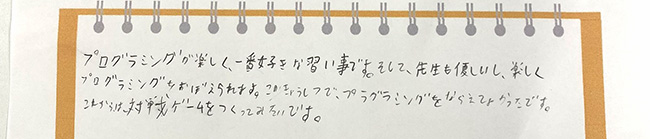 プログラミングが楽しく、一番好きな習い事です。そして、先生も優しいし、楽しく
プログラミングをおぼえられます。このきょうしつで、プラグラミングをならえてよかったです。
これからは、対戦ゲームをつくってみたいです。